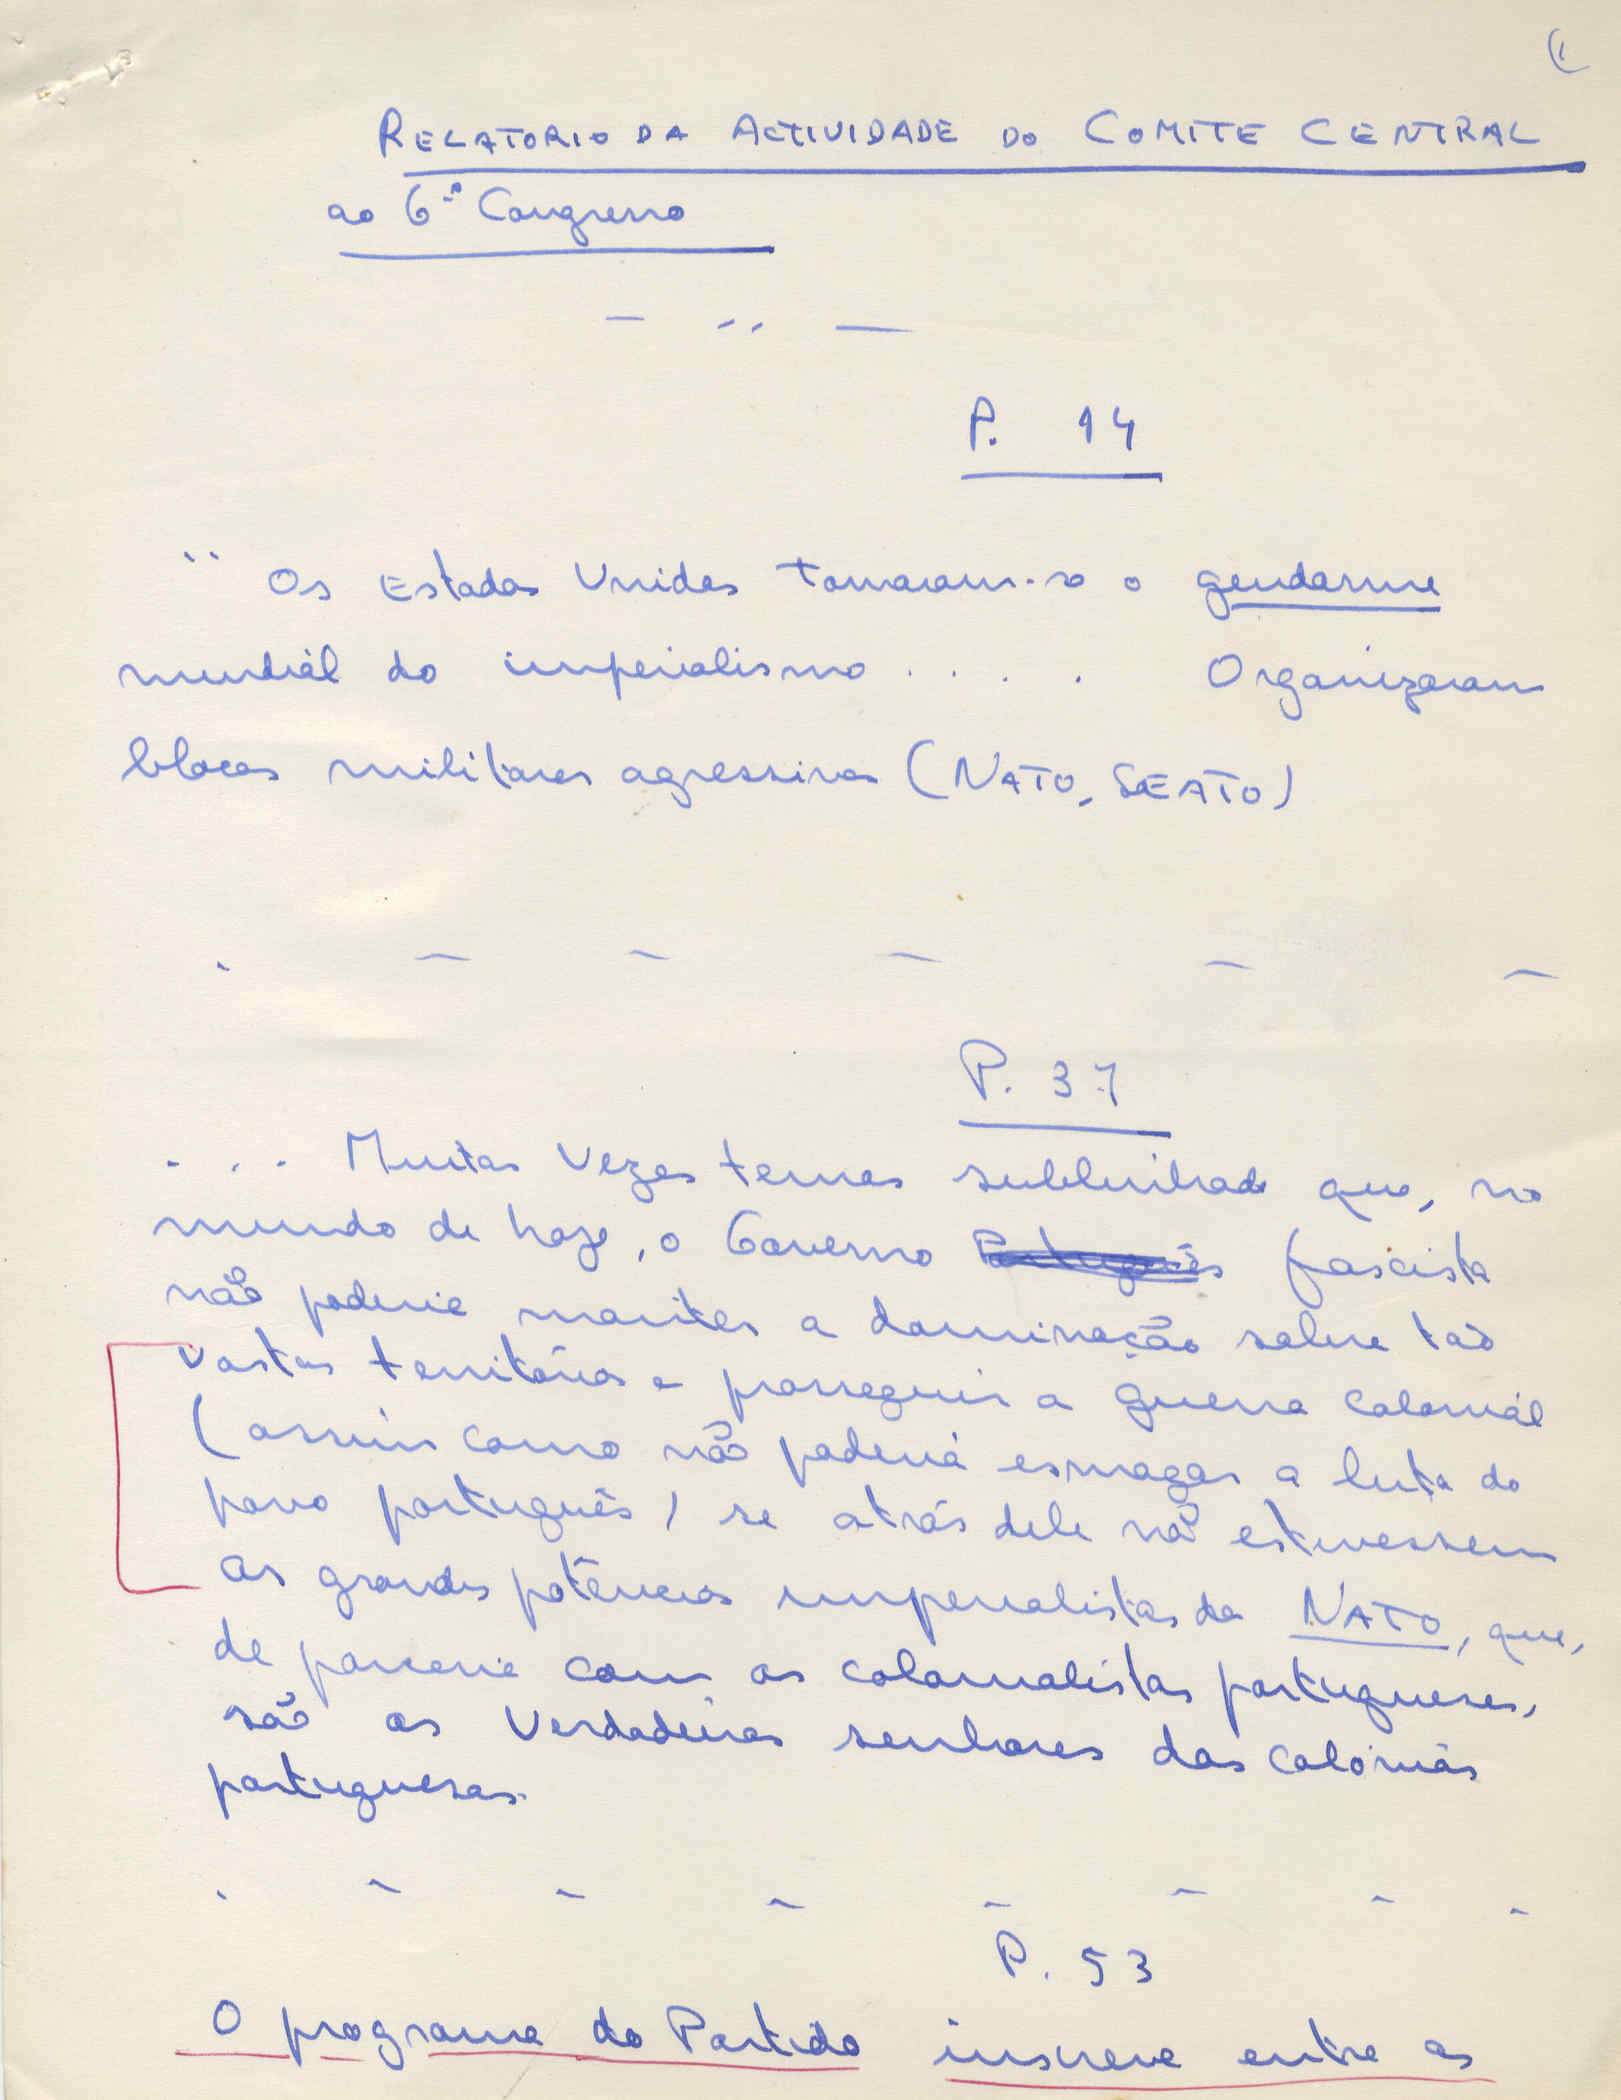 (1
RELATORIO DA ACTIVIDADE DO COMITE CENTRAL
ao 6º Congresso
P. 14
" Os Estados Unidos tornaram-se o gendarme
mundiál do imperialismo . . . . Organizaram
blocos militares agressivos (NATO, SEATO)
P. 37
. . . Muitas vezes temos sublinhado que, no
mundo de hoje, o Governo Português fascista
não poderia manter a dominação sobre tão
vastos territórios e prosseguir a guerra coloniál
(assim como não poderia esmagar a luta do
povo português) se atrás dele não estivessem
as grandes potências imperialistas da NATO, que,
de parceria com os colonialistas portugueses,
são os verdadeiros senhores das colónias
portuguesas.
P. 53
O programa do Partido inscreve entre os